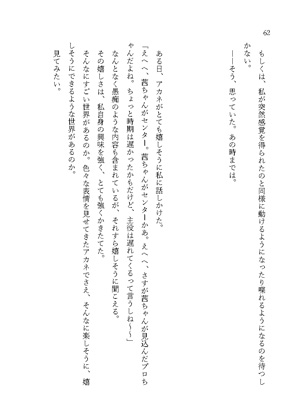 62
もしくは、私が突然感覚を得られたのと同様に動けるようになったり喋れるようになるのを待つし
かない。
――そう、思っていた。あの時までは。
ある日、アカネがとても嬉しそうに私に話しかけた。
「えへへ、茜ちゃんがセンター。茜ちゃんがセンターかあ。えへへ、さすが茜ちゃんが見込んだプロち
ゃんだよね。ちょっと時期は遅かったかもだけど、主役は遅れてくるって言うしね〜〜」
なんとなく愚痴のような内容も含まれているが、それすら嬉しそうに聞こえる。
その嬉しさは、私自身の興味を強く、とても強くかきたてた。
そんなにすごい世界があるのか。色々な表情を見せてきたアカネでさえ、そんなに楽しそうに、嬉
しそうにできるような世界があるのか。
見てみたい。